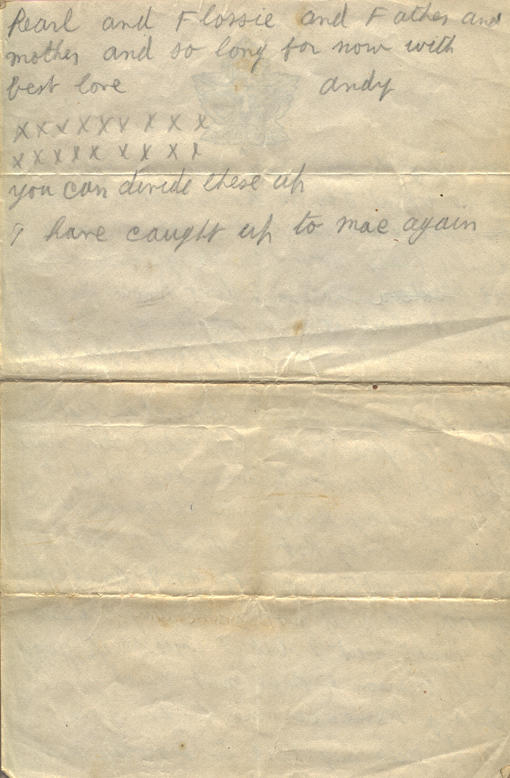 Pearl and Flossie and Father and
mother and so long for now with
best love andy
xxxxxxx x x x
xxxxx x x x x
you can divide these up
I have caught up to mac again